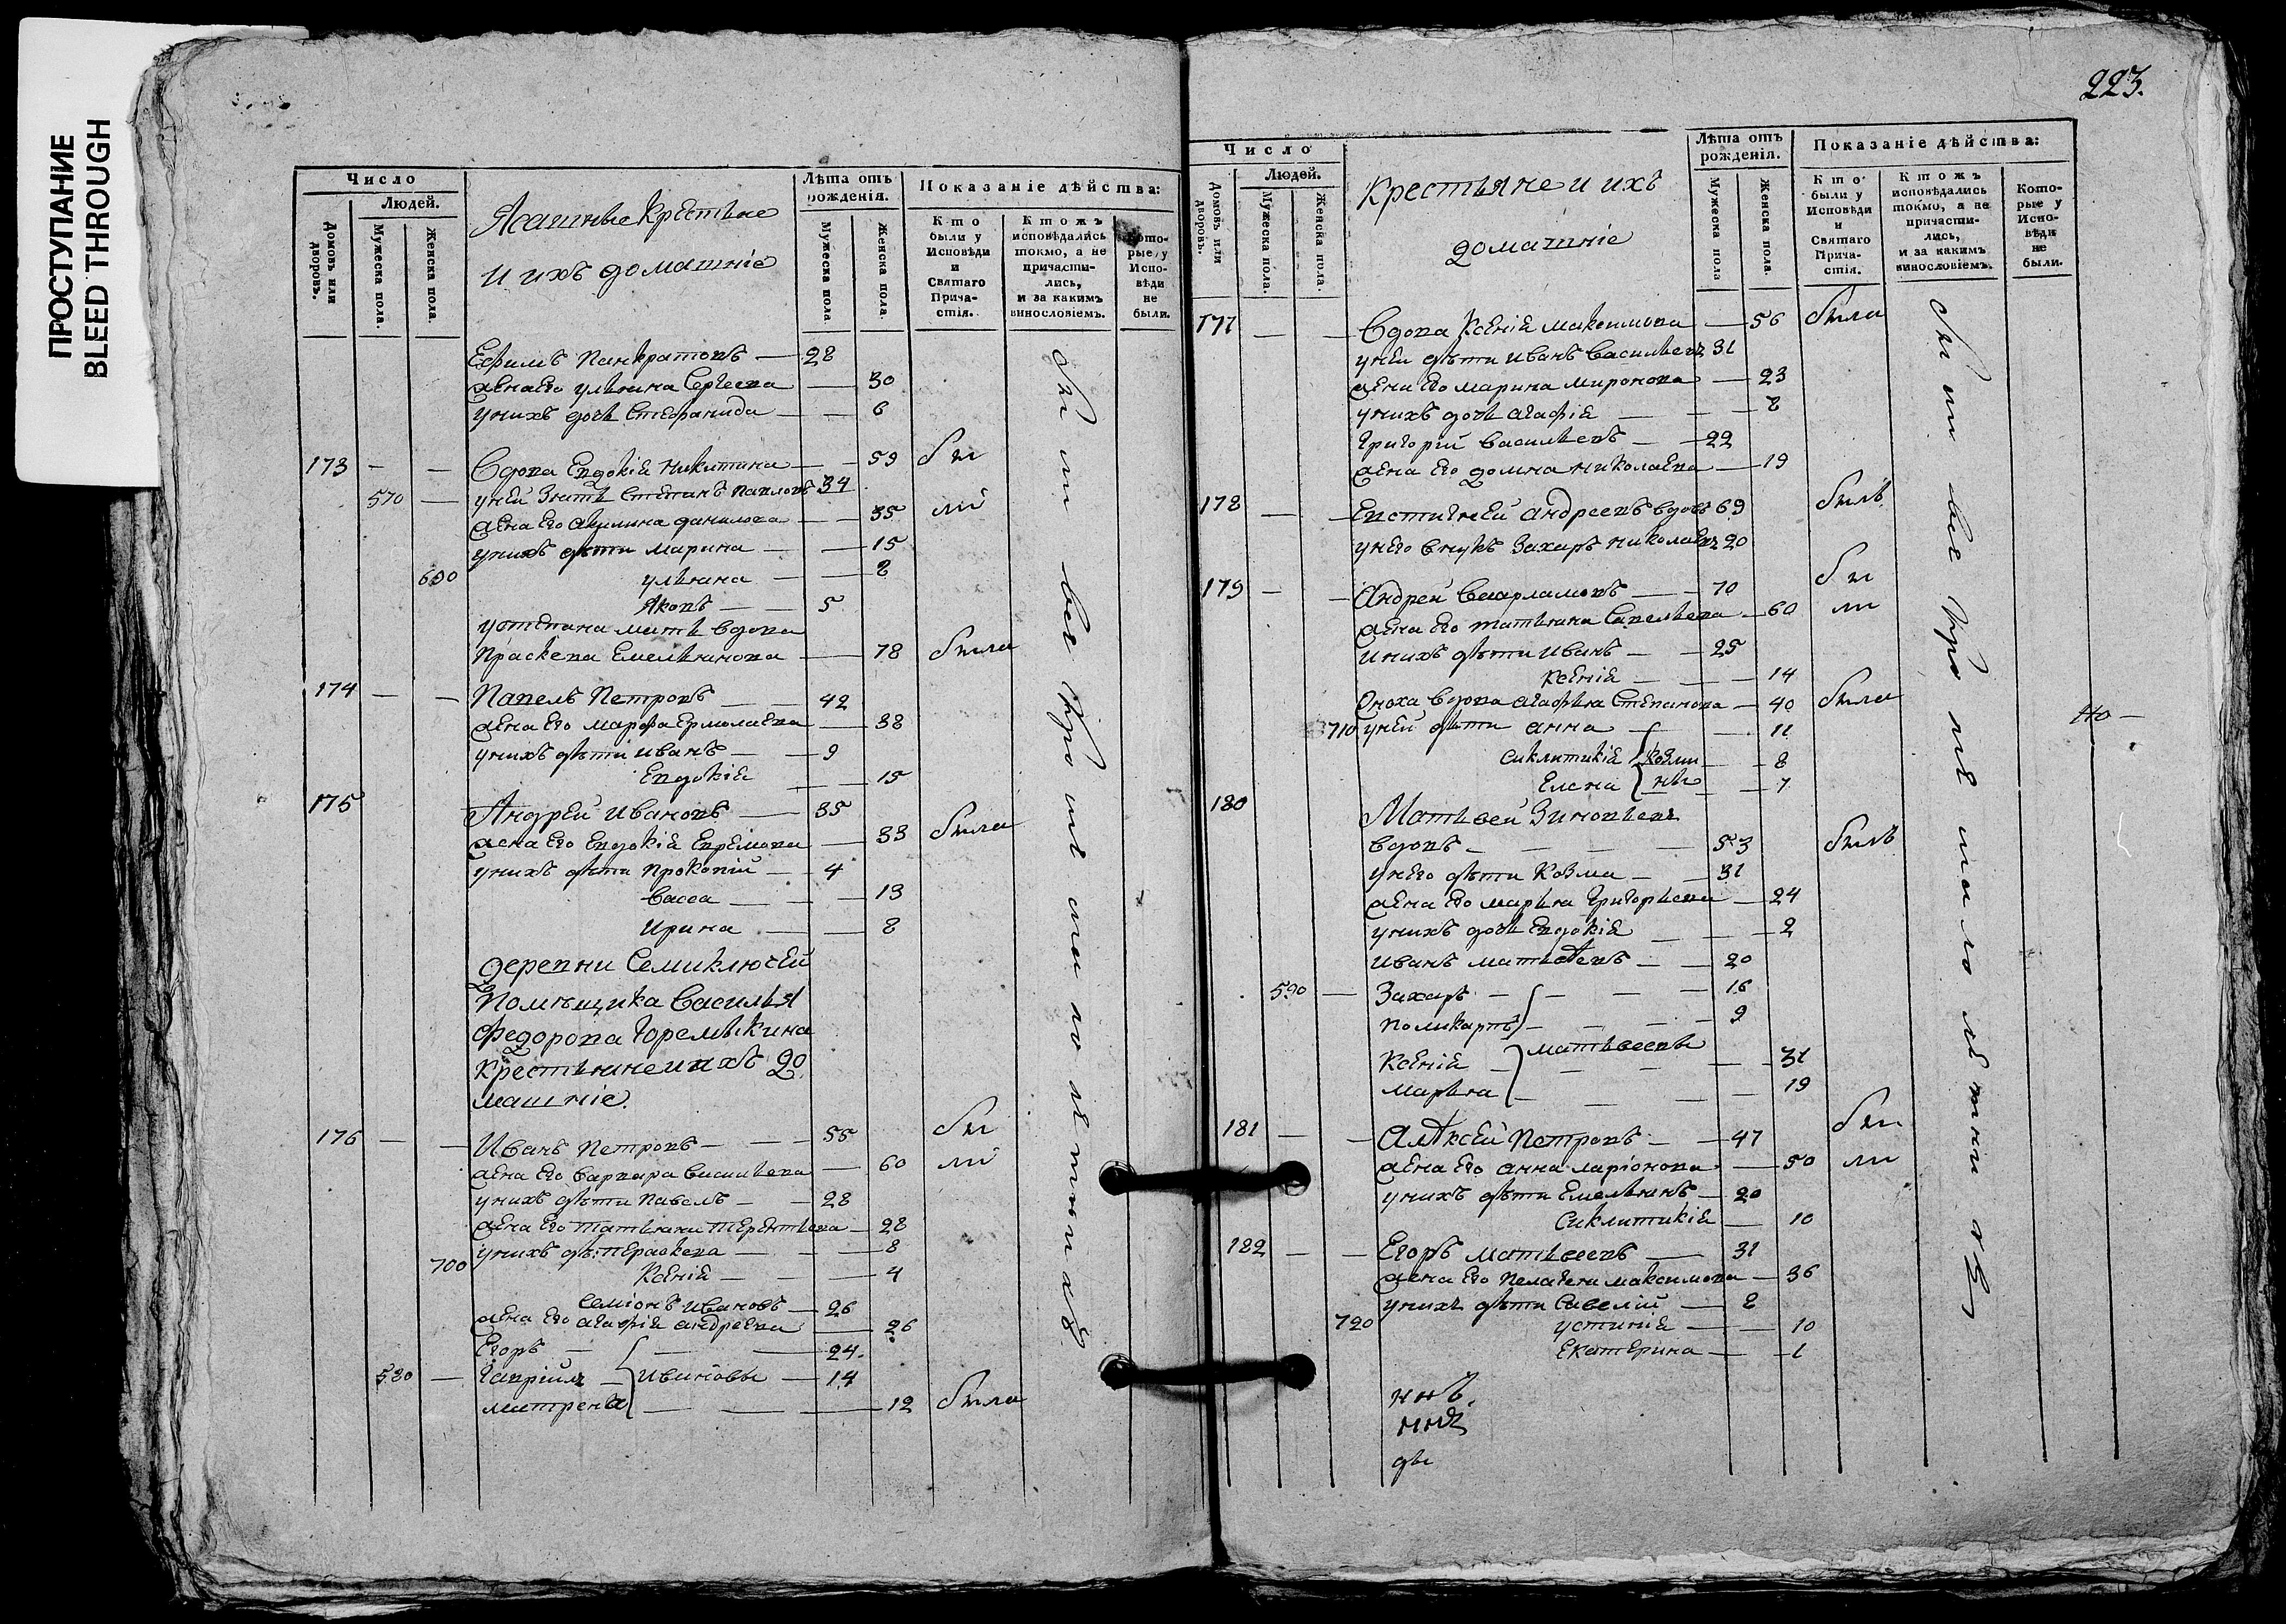 ПРОСТУПАНИЕ
BLEED THROUGH
Число
Людей.
Домовъ или дворовъ.
Мужеска пола.
Женска пола.
Ясашные крестьяне
и ихъ домашніе
Лѣта отъ рожденія.
Мужеска пола.
Женска пола.
Показаніе дѣйства:
Кто были у Исповѣди и Святаго Причастія.
Ктожъ исповѣдались токмо, а не причастились, и за какимъ винословіемъ.
Которые у Исповѣди не были.
Ефимъ Панкратовъ — 28
жена его ульяна Сергеева — 30
унихъ дочь Стефанида — — 6
173 — — Вдова Евдокія Никитина — 59 бы
570 — уней Зять Степанъ Павловъ 34
жена его акилина данилова — — 35 ли
унихъ дѣти Марина — — 15
690 ульяна — — 8
Яковъ — — 5
устепана мать вдова
Праскева Емельянова — 78 была
174 — — Павелъ Петровъ — 42
жена его марфа Ермолаева — 38
унихъ дѣти иванъ — — 9
Евдокія — — 15
175 Андрей Ивановъ — 35
жена его Евдокія Ефремова — 33 была
унихъ дѣти Прокопій — 4
Васса — — 13
Ирина — — 8
деревни Семиключей
Помѣщика Василья
Федорова Горемыкина
крестьяне и ихъ до
машніе.
176 — — Иванъ Петровъ — — 55 бы
жена его варвара васильева — 60 ли
унихъ дѣти Павелъ — — 28
жена его татьяна терентьева — 28
700 унихъ дѣ: Праскева — — 8
Ксенія — — 4
Семіонъ Ивановъ — 26
жена его агафія андреева — 26
Егоръ — — 24.
580 — Гавріилъ — Ивановы — 14
матрена — — 12 была
бы ли все кро мѣ мало лѣтнихъ
223.
Число
Людей.
Домовъ или дворовъ.
Мужеска пола.
Женска пола.
крестьяне и ихъ
домашніе
Лѣта отъ рожденія.
Мужеска пола
Женска пола.
Показаніе дѣйства:
Кто были у Исповѣди и Святаго Причастія.
Ктожъ исповѣдались токмо, а не причастились, и за какимъ винословіемъ.
Которые у Исповѣди не были.
177 — — Вдова Ксенія максимова — 56 была
уней дѣти Иванъ Васильевъ 31
жена его марина миронова — 23
унихъ дочь агафія — — 2
Григорій васильевъ — 22
жена его домна николаева — 19
178 — — Евстигней андреевъ вдовъ 69 былъ
унего внукъ Захаръ николаевъ 20
179 — — Андрей Варламовъ — 70 бы
жена его татьяна Савельева — 60 ли
и нихъ дѣти Иванъ — — 25
Ксенія — — 14
Сноха вдова агафья Степанова — 40 была
710 уней дѣти анна — — 11
Сиклитикія козми — 8
Елена ны — 7
180 Матвей Зиновьевъ
вдовъ — — 53 былъ
унего дѣти Козма — — 31
жена его марья григорьева — 24
унихъ дочь Евдокія — — 2
Иванъ матвѣевъ — — 20
590 — Захаръ — — 16
Поликарпъ — — 9
матвеевы
Ксенія — — 31
марья — — 19
181 — — Алѣксей Петровъ — — 47 бы
жена его анна ларіонова — 50 ли
унихъ дѣти Емельянъ — 20
Сиклитикія — 10
182 — — Егоръ матвеевъ — 31
жена его пелагея максимова — 36
унихъ дѣти Савелій — 2
720 устинія — — 10
Екатерина — 1
бы ли все кро мѣ мало лѣтнихъ